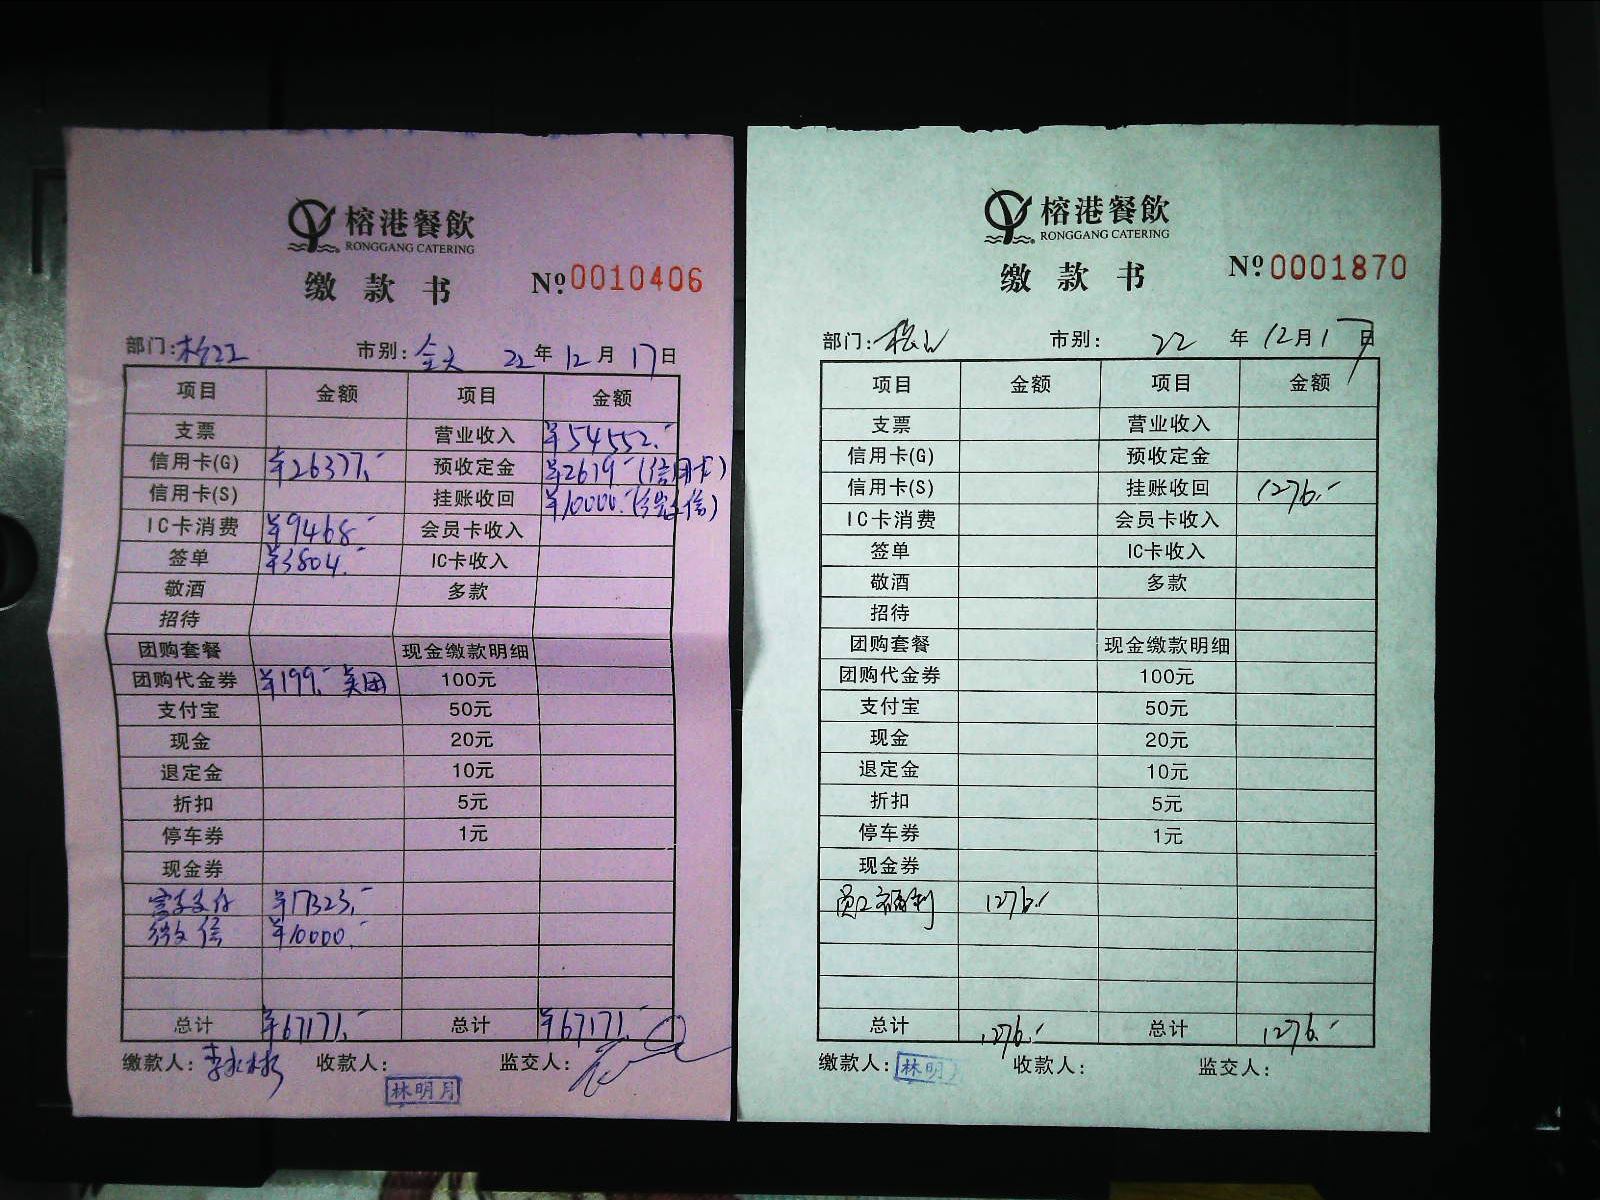 榕港餐飲
RONGGANG CATERING
缴款书 Nº 0010406
部门: 松江 市别: 全天 22年12月17日
项目 金额 项目 金额
支票 营业收入 ¥54552.-
信用卡(G) ¥26377.- 预收定金 ¥2619-(信用卡)
信用卡(S) 挂账收回 ¥10000.(微信)
IC卡消费 ¥9468- 会员卡收入
签单 ¥3804.- IC卡收入
敬酒 多款
招待
团购套餐 现金缴款明细
团购代金券 ¥199.- 美团 100元
支付宝 50元
现金 20元
退定金 10元
折扣 5元
停车券 1元
现金券
¥17323.-
微信 ¥10000.-
总计 ¥67171.- 总计 ¥67171.-
缴款人: 收款人: 监交人:
林明月
榕港餐飲
RONGGANG CATERING
缴款书 Nº 0001870
部门: 市别: 22年12月17日
项目 金额 项目 金额
支票 营业收入
信用卡(G) 预收定金
信用卡(S) 挂账收回 1276.-
IC卡消费 会员卡收入
签单 IC卡收入
敬酒 多款
招待
团购套餐 现金缴款明细
团购代金券 100元
支付宝 50元
现金 20元
退定金 10元
折扣 5元
停车券 1元
现金券
员工福利 1276.-
总计 1276.- 总计 1276.-
缴款人: 林明月 收款人: 监交人: